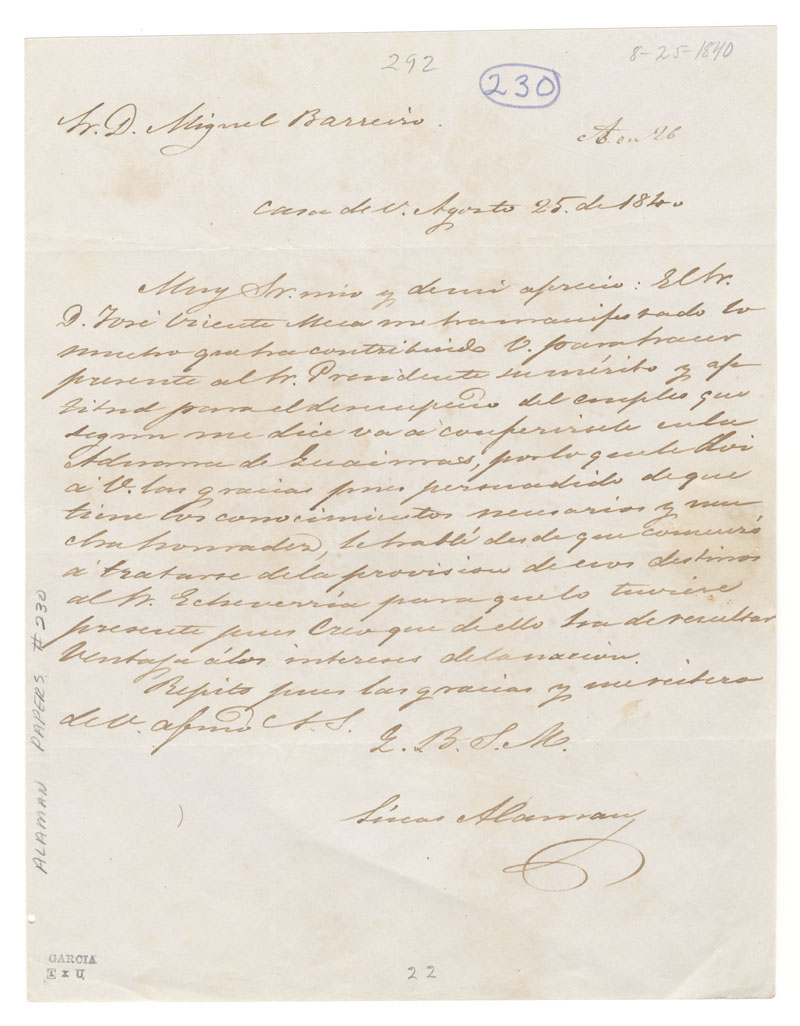 292
230
8-25-1840
Sr. D. Miguel Barreiro.
en 26
Casa de V. Agosto 25. de 1840
Muy Sr. mio y de mi aprecio: El Sr.
D. José Vicente Meza me ha manifestado lo
mucho que ha contribuido V. para hacer
presente al Sr. Presidente su mérito y ap
titud para el desempeño del empleo que
segun me dice va á conferirsele en la
Aduana de Guaimas, por lo que le doi
á V. las gracias pues persuadido de que
tiene los conocimientos necesarios y mu
cha honradez, le hablé desde que comenzó
á tratarse de la provision de esos destinos
al Sr. Echeverría para que lo tuviese
presente pues creo que de ello ha de resultar
ventaja á los intereses de la nacion.
Repito pues las gracias y me reitero
de V. afmo A. S.
Q. B. S. M.
Lúcas Alaman
ALAMAN PAPERS. #230
GARCIA
T x U
22